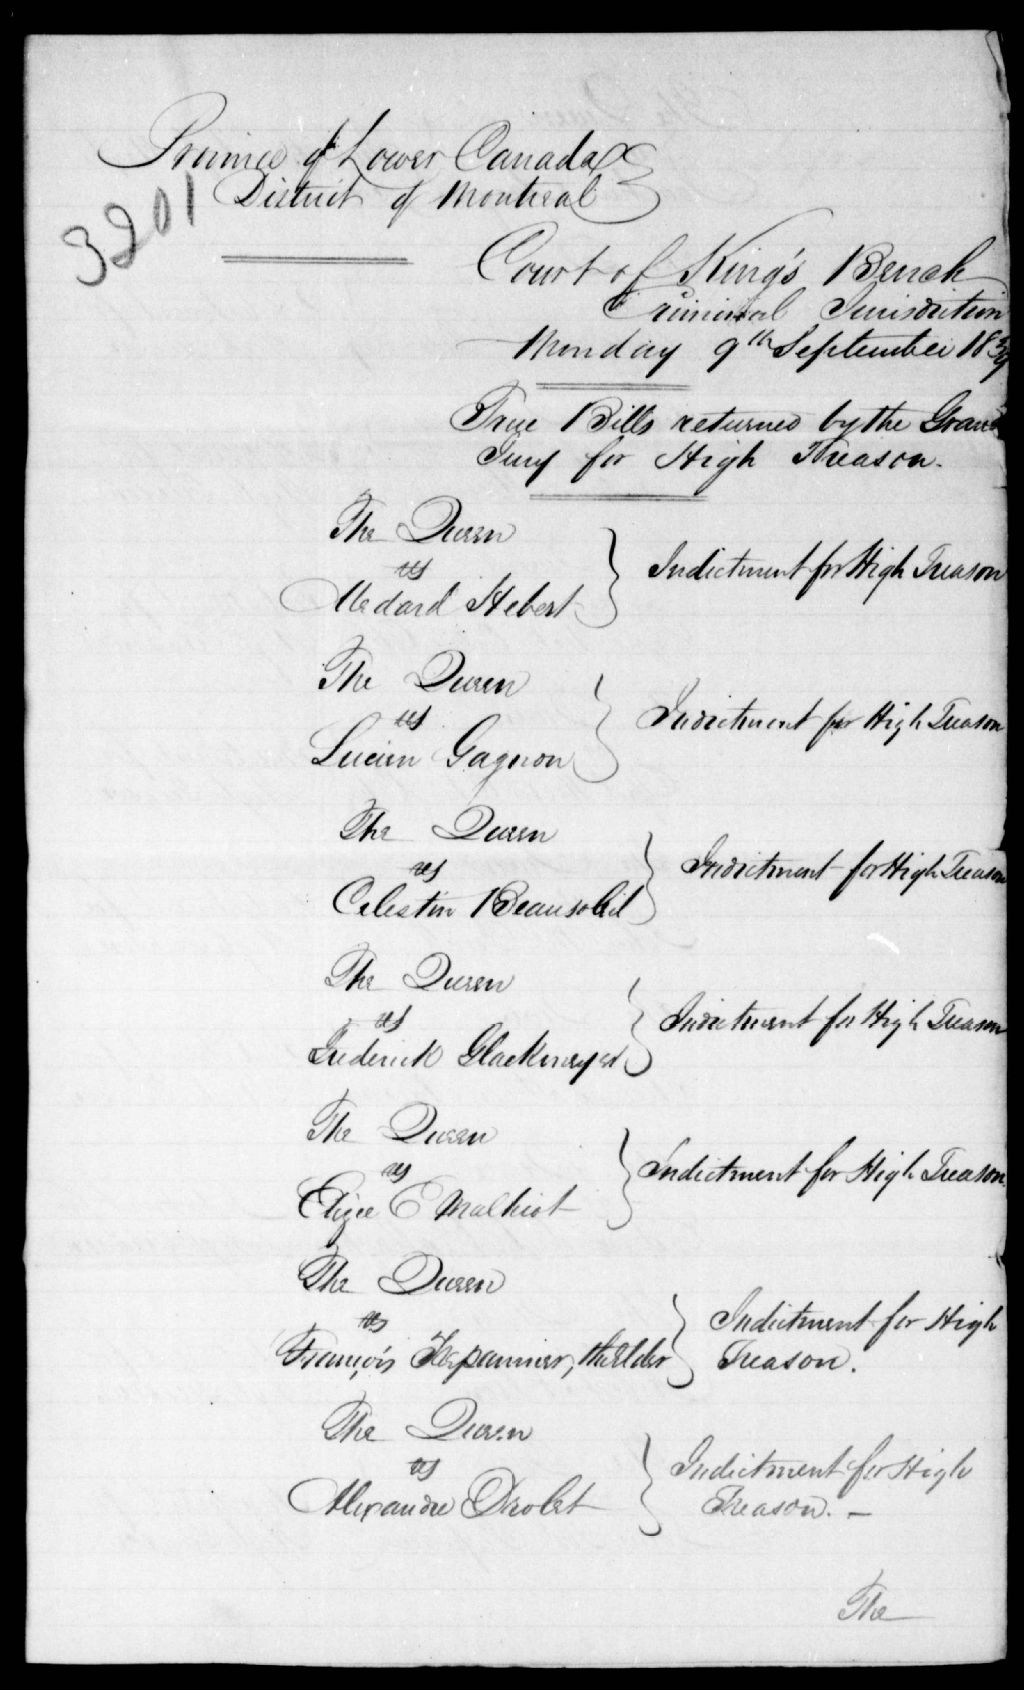 Province of Lower Canada
District of Montreal
3201
Court of King's Bench
Criminal Jurisdiction
Monday 9th September 1839
True Bills returned by the Grand
Jury for High Treason.
The Queen
vs
Medard Hebert
Indictment for High Treason
The Queen
vs
Lucien Gagnon
Indictment for High Treason
The Queen
vs
Celestin Beausoleil
Indictment for High Treason
The Queen
vs
Frederick Glackmeyer
Indictment for High Treason
The Queen
vs
Elizée E Malhiot
Indictment for High Treason.
The Queen
vs
François Trepannier, the Elder
Indictment for High
Treason.
The Queen
vs
Alexandre Drolet
Indictment for High
Treason. —
The